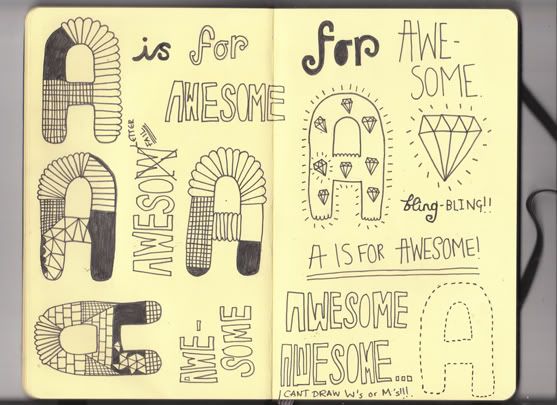 A is for
AWESOME
LETTER
FAIL!
AWESOM
A
A
A
A
AWE-
SOME
for AWE-
SOME.
A
bling-BLING!!
A IS FOR AWESOME!
AWESOME
AWESOME...
A
I CANT DRAW W's or M's!!!